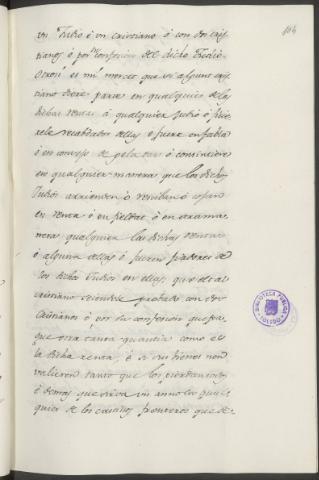 104
un Judio è un cristiano ó con dos cris
tianos ò por confesion del dicho Judio
Otrosi es mi merced que si algunt cris
tiano diere parte en qualquier de las
dichas rentas à qualquier judio è fue
re le recabdador dellas o fuere en fabla
ó en consejo de gela dar ó consintiere
en qualquier manera que los dichos
Judios arrienden ò resciban ò cojan
en renta ò en fieldat ò en otra ma
nera qualquier las dichas rentas
ó alguna dellas ó fueren fiadores de
los dichos Judios en ellas, que el tal
cristiano seiendole probado con dos
Cristianos ó por su confesion que pa
gue otra tanta quantia como es
la dicha renta, è si sus bienes non
valieren tanto que los pierda
è demas que sirva un anno en qual
quier de los castillos fronteros que de
BIBLIOTECA PUBLICA
TOLEDO